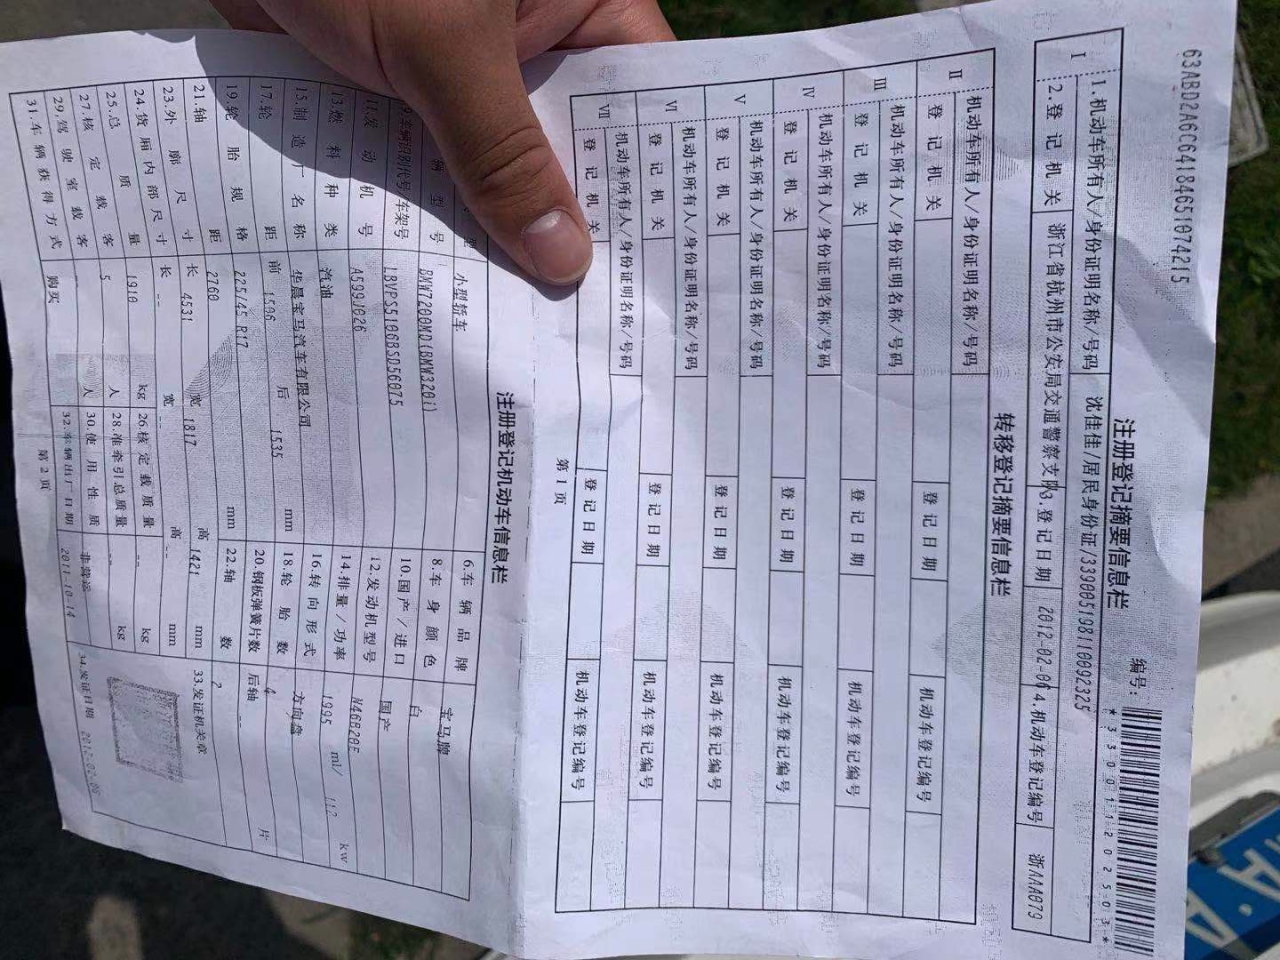 63ABD2A6C6418465107421​5
注册登记摘要信息栏
编号:
*330011202503*
I
1.机动车所有人/身份证明名称/号码 沈佳佳/居民身份证/339005198110092325
2.登记机关 浙江省杭州市公安局交通警察支队 3.登记日期 2012-02-06 4.机动车登记编号 浙AAA079
转移登记摘要信息栏
II
机动车所有人/身份证明名称/号码
登记机关 登记日期 机动车登记编号
III
机动车所有人/身份证明名称/号码
登记机关 登记日期 机动车登记编号
IV
机动车所有人/身份证明名称/号码
登记机关 登记日期 机动车登记编号
V
机动车所有人/身份证明名称/号码
登记机关 登记日期 机动车登记编号
VI
机动车所有人/身份证明名称/号码
登记机关 登记日期 机动车登记编号
VII
机动车所有人/身份证明名称/号码
登记机关 登记日期 机动车登记编号
第1页
注册登记机动车信息栏
型 小型轿车 6.车辆品牌 宝马牌
辆型号 BMW7200MD(BMW320i) 8.车身颜色 白
车辆识别代号/车架号 LBVPS5106BSD56075 10.国产/进口 国产
11.发动机号 A599J026 12.发动机型号 N46B20E
13.燃料种类 汽油 14.排量/功率 1995 ml/ 112 kw
15.制造厂名称 华晨宝马汽车有限公司 16.转向形式 方向盘
17.轮距 前 1506 后 1535 mm 18.轮胎数 4
19.轮胎规格 225/45 R17 20.钢板弹簧片数 后轴 -- 片
21.轴距 2760 mm 22.轴数 2
23.外廓尺寸 长 4531 宽 1817 高 1421 mm 33.发证机关章
24.货厢内部尺寸 长 -- 宽 -- 高 -- mm
25.总质量 1910 kg 26.核定载质量 -- kg
27.核定载客 5 人 28.准牵引总质量 -- kg
29.驾驶室载客 -- 人 30.使用性质 非营运
31.车辆获得方式 购买 32.车辆出厂日期 2011-10-14 34.发证日期 2012-02-06
第2页